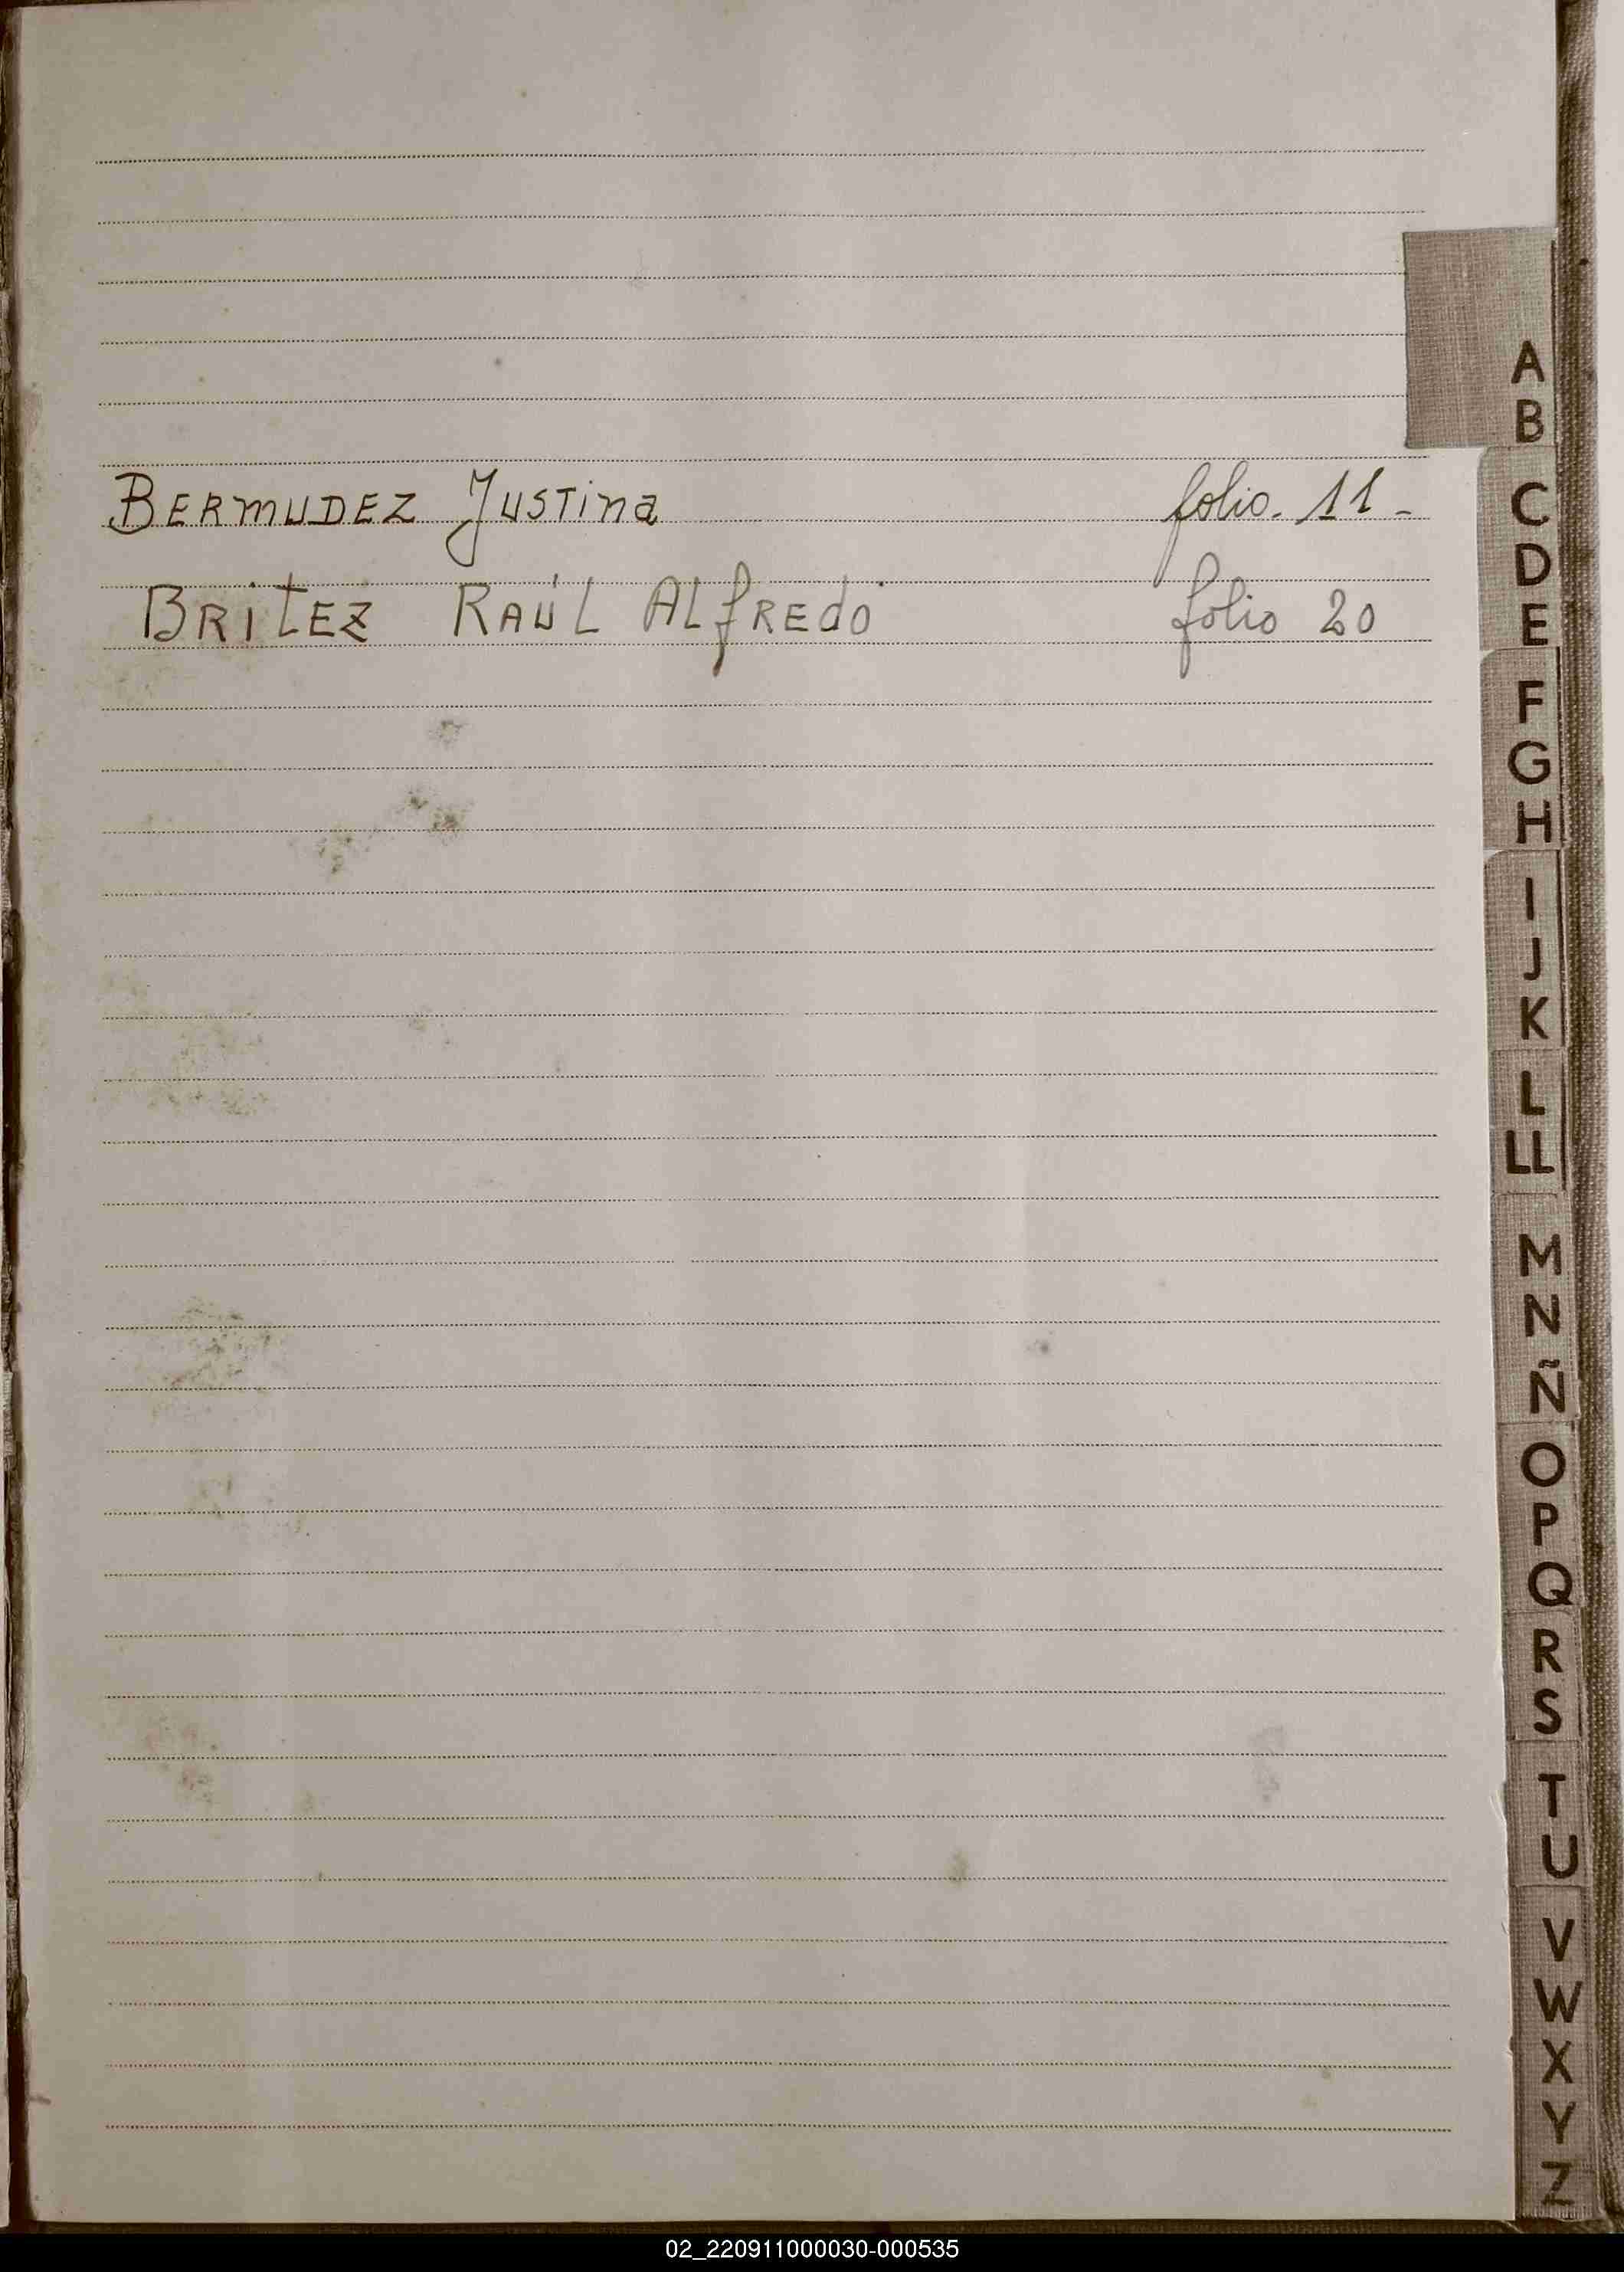 A
B
BERMUDEZ JUSTina folio. 11 -
C
D
BRITEZ RAÚL ALfREdo folio 20
E
F
G
H
I
J
K
L
LL
M
N
Ñ
O
P
Q
R
S
T
U
V
W
X
Y
Z
02_220911000030-000535